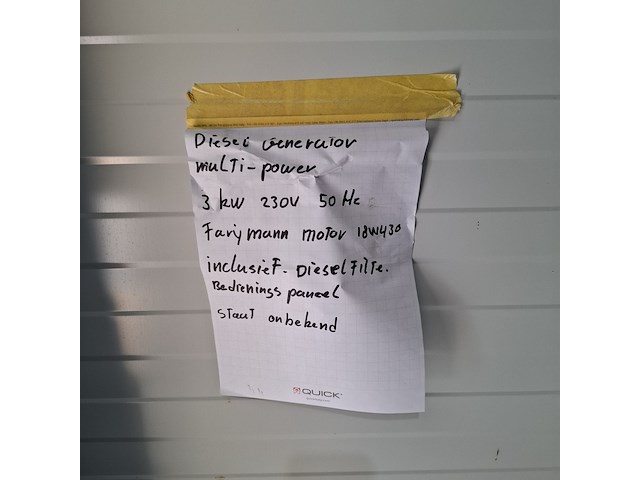 Diesel Generator
multi-power
3 kW 230V 50 Hz
Farijmann motor 18W430
inclusief. Dieselfilte.
Bedienings paneel
staat onbekend
QUICK